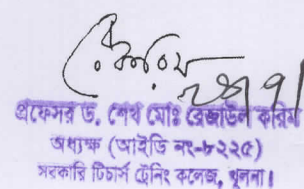 রেকরিম
প্রফেসর ড. শেখ মোঃ রেজাউল করিম
অধ্যক্ষ (আইডি নং-৮২২৫)
সরকারি টিচার্স ট্রেনিং কলেজ, খুলনা।